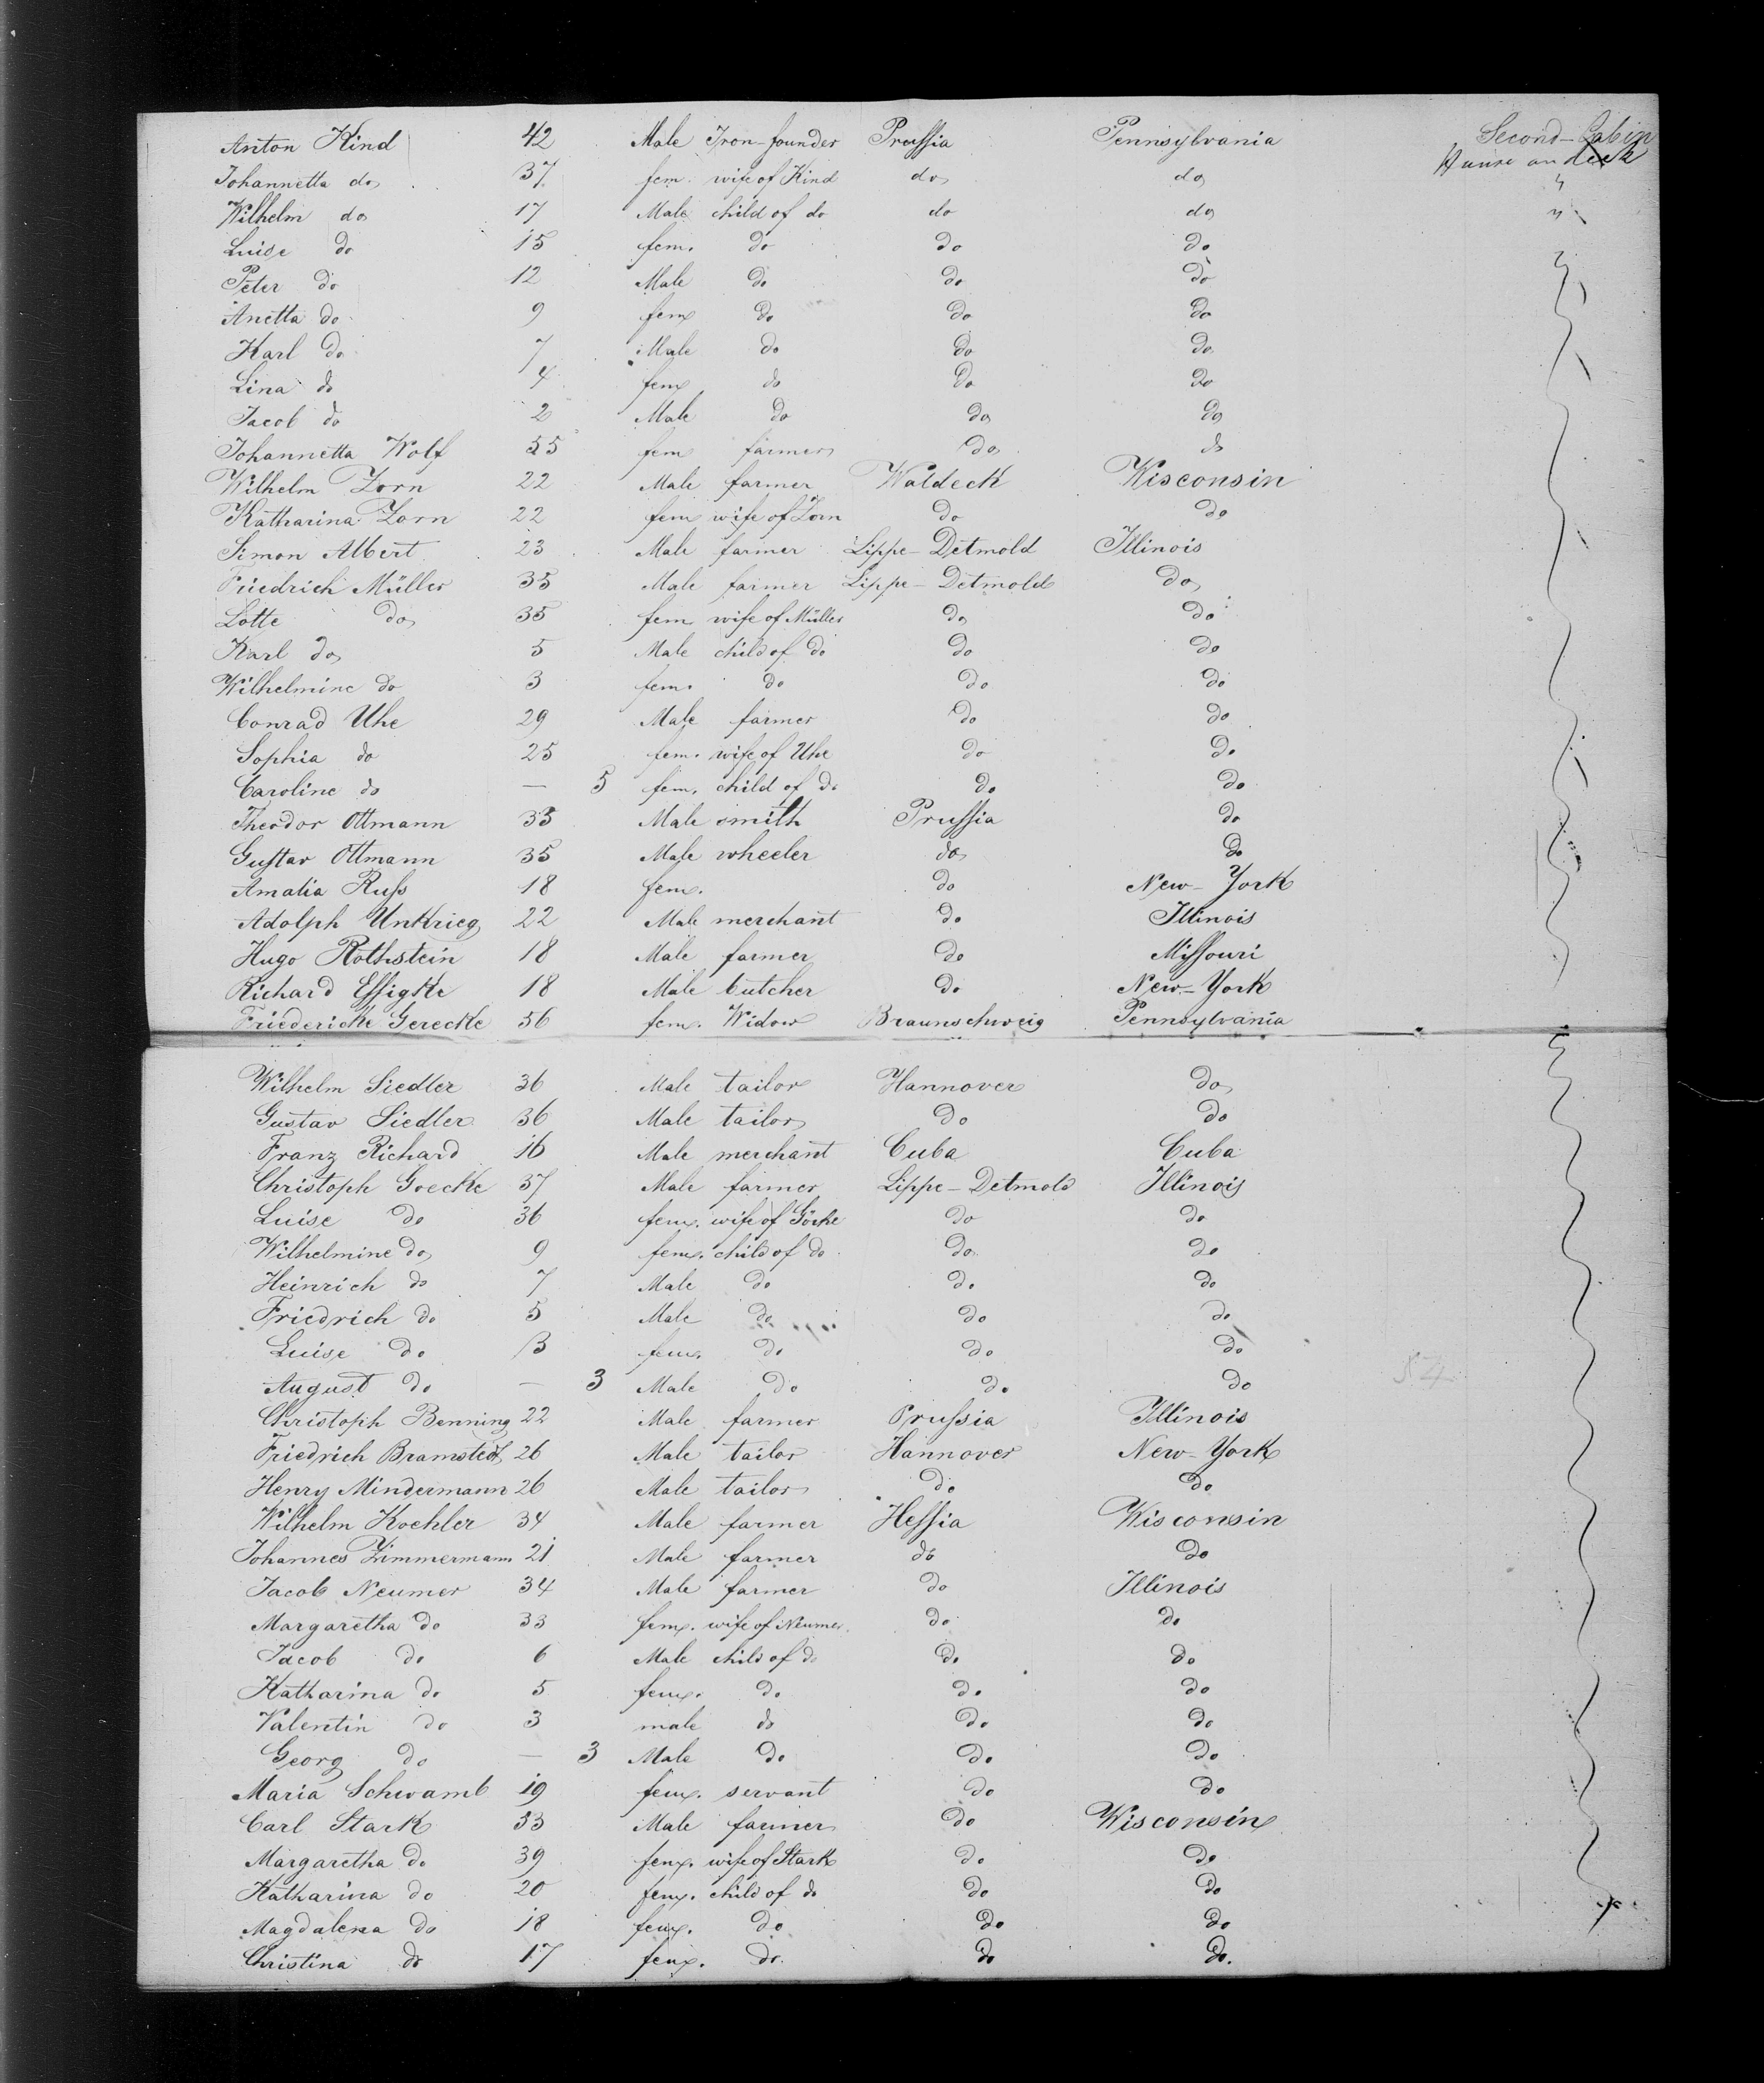 Anton Kind 42 Male Iron-founder Prussia Pennsylvania Second-Cabin
Johannetta do 37 fem. wife of Kind do do House on deck
Wilhelm do 17 Male child of do do do "
Luise do 15 fem. do do do
Peter do 12 Male do do do
Anetta do 9 fem do do do
Karl do 7 Male do do do
Lina do 4 fem do do do
Jacob do 2 Male do do do
Johannetta Wolf 55 fem farmer do do
Wilhelm Zorn 22 Male farmer Waldeck Wisconsin
Katharina Zorn 22 fem wife of Zorn do do
Simon Albert 23 Male farmer Lippe-Detmold Illinois
Friedrich Müller 35 Male farmer Lippe-Detmold do
Lotte do 35 fem wife of Müller do do
Karl do 5 Male child of do do do
Wilhelmine do 3 fem. do do do
Conrad Uhe 29 Male farmer do do
Sophia do 25 fem. wife of Uhe do do
Caroline do — 5 fem. child of do do do
Theodor Ottmann 33 Male smith Prussia do
Gustav Ottmann 35 Male wheeler do do
Amalia Russ 18 fem. do New-York
Adolph Unkrieg 22 Male merchant do Illinois
Hugo Rothstein 18 Male farmer do Missouri
Richard Essigke 18 Male butcher do New-York
Friedericke Gerecke 56 fem. Widow Braunschweig Pennsylvania
Wilhelm Siedler 36 Male tailor Hannover do
Gustav Siedler 36 Male tailor do do
Franz Richard 16 Male merchant Cuba Cuba
Christoph Goecke 37 Male farmer Lippe-Detmold Illinois
Luise do 36 fem. wife of Göcke do do
Wilhelmine do 9 fem. child of do do do
Heinrich do 7 Male do do do
Friedrich do 5 Male do do do
Luise do 3 fem. do do do
August do — 3 Male do do do
Christoph Benning 22 Male farmer Prussia Illinois
Friedrich Bramstedt 26 Male tailor Hannover New-York
Henry Mindermann 26 Male tailor do do
Wilhelm Koehler 34 Male farmer Hessia Wisconsin
Johannes Zimmermann 21 Male farmer do do
Jacob Neumer 34 Male farmer do Illinois
Margaretha do 33 fem. wife of Neumer do do
Jacob do 6 Male child of do do do
Katharina do 5 fem. do do do
Valentin do 3 male do do do
Georg do — 3 Male do do do
Maria Schwamb 19 fem. servant do do
Carl Stark 33 Male farmer do Wisconsin
Margaretha do 39 fem. wife of Stark do do
Katharina do 20 fem. child of do do do
Magdalena do 18 fem. do do do
Christina do 17 fem. do do do.